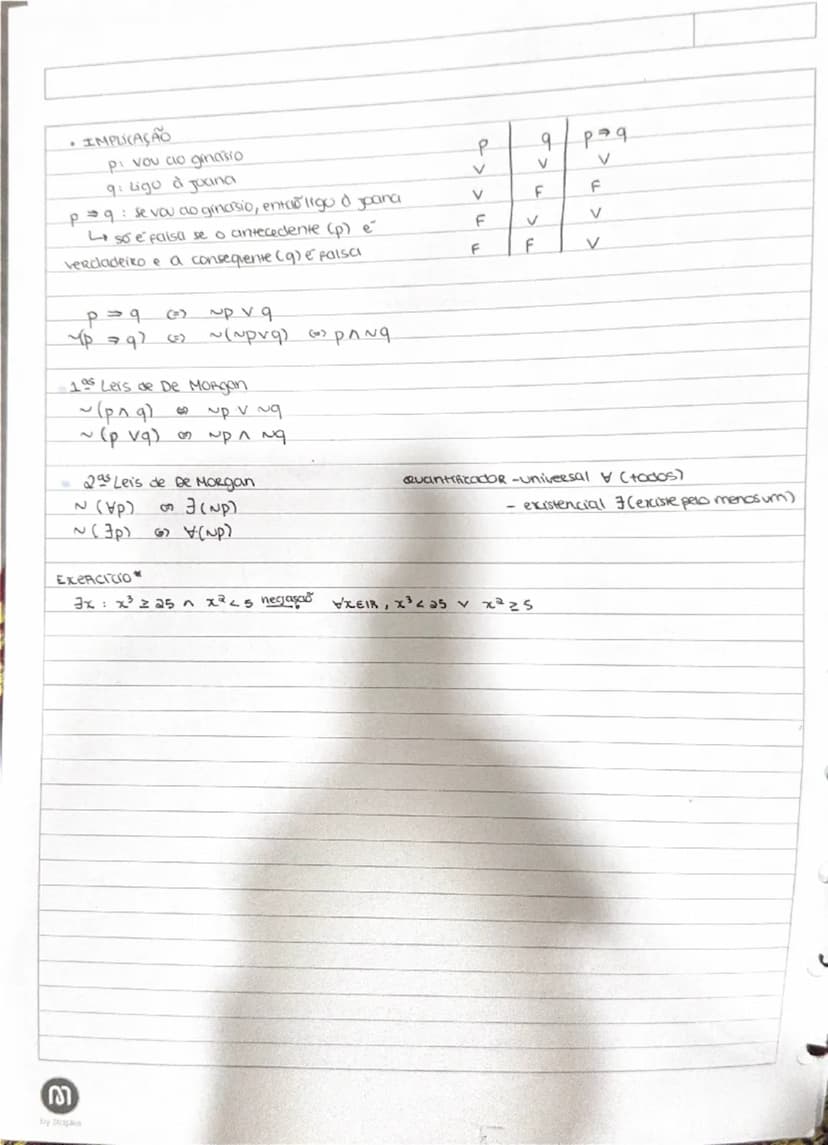 • IMPLICAÇÃO
p: vou ao ginásio
q: Ligo à Joana
p ⇒ q : se vou ao ginásio, então ligo à Joana
↳ só é falsa se o antecedente (p) é
verdadeiro e a conseqente (q) é falsa
p | q | p ⇒ q
V | V | V
V | F | F
F | V | V
F | F | V
p ⇒ q (=) ~p ∨ q
~(p ⇒ q) (=) ~(~p∨q) (=) p ∧ ~q
1ªs Leis de De Morgan
~(p ∧ q) (=) ~p ∨ ~q
~(p ∨ q) (=) ~p ∧ ~q
2ªs Leis de De Morgan
~(∀p) (=) ∃(~p)
~(∃p) (=) ∀(~p)
Quantificador - universal ∀ (todos)
- existencial ∃ (existe pelo menos um)
Exercício*
∃x : x³ ≥ 25 ∧ x² < 5 negação ∀x∈ℝ, x³ < 25 ∨ x² ≥ 5